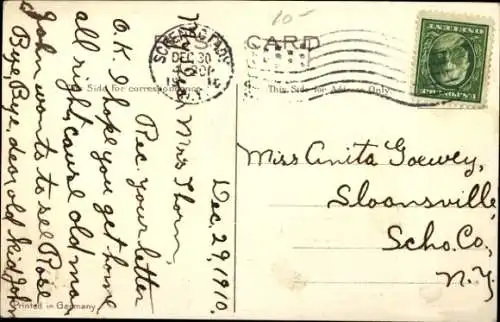 POST CARD
10-
DEC 30
This Side for correspondence
This Side for Address Only.
Dec. 29, 1910.
Miss Thorn,
Rec. your letter
O.K. I hope you get home
all right, cause old ma,
John wants to see Rose
Bye, Bye, dear old kid, John
Miss Anita Goewey,
Sloansville,
Scho. Co.,
N.Y.
Printed in Germany